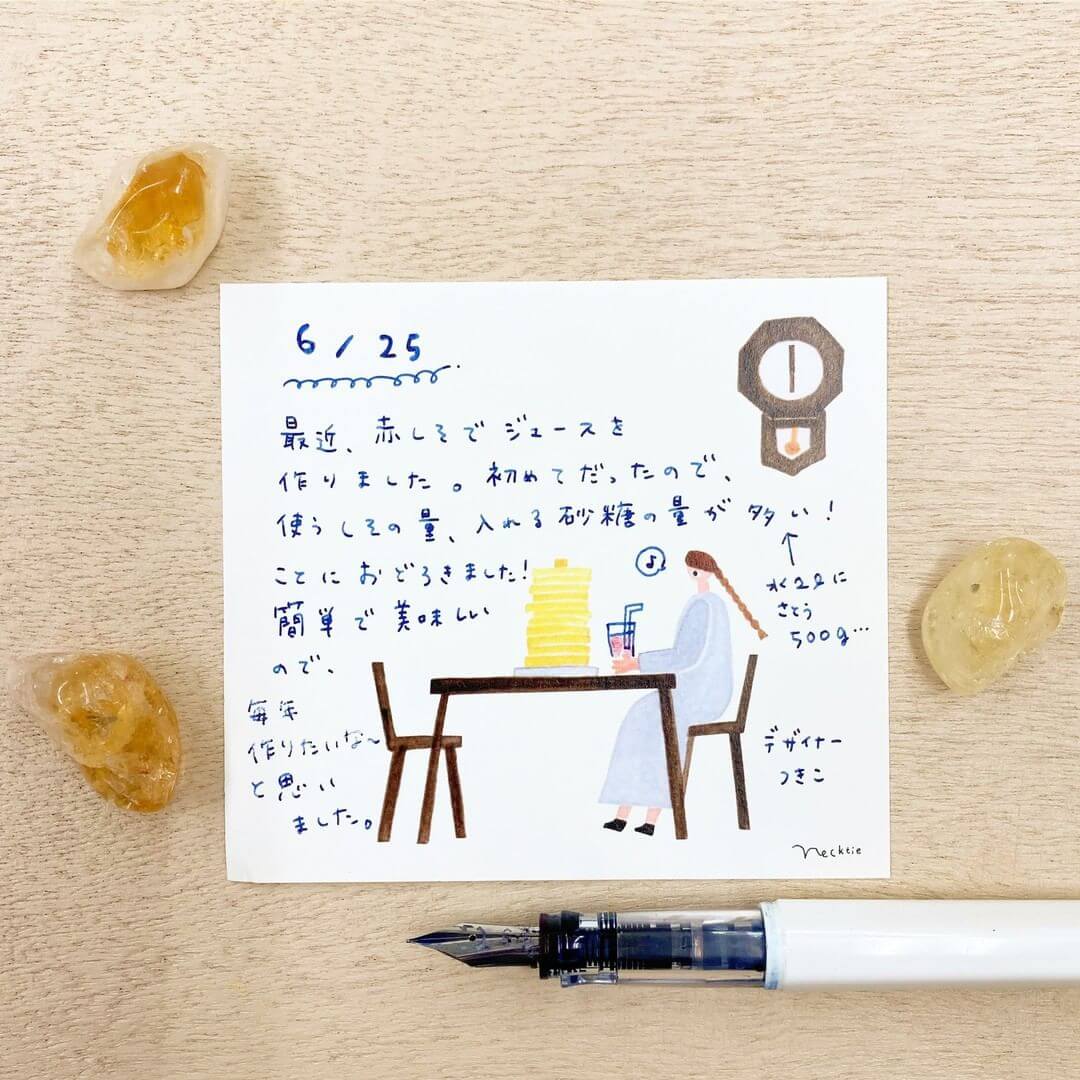 6/25
最近、赤しそでジュースを
作りました。初めてだったので、
使うしその量、入れる砂糖の量が多い!
ことにおどろきました!
簡単で美味しい
ので、
毎年
作りたいな〜
と思い
ました。
↑
水2ℓに
さとう
500g…
♪
デザイナー
つきこ
necktie